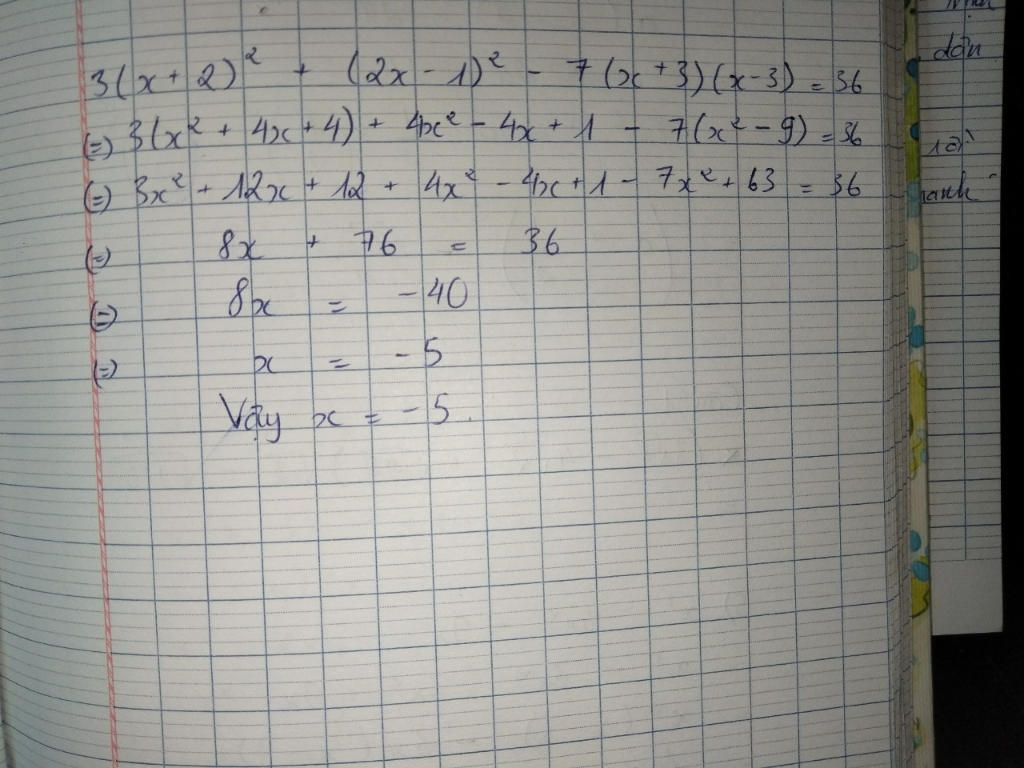 3(x + 2)² + (2x - 1)² - 7(x + 3)(x - 3) = 36
(=) 3(x² + 4x + 4) + 4x² - 4x + 1 - 7(x² - 9) = 36
(=) 3x² + 12x + 12 + 4x² - 4x + 1 - 7x² + 63 = 36
(=) 8x + 76 = 36
(=) 8x = -40
(=) x = -5
Vậy x = -5.